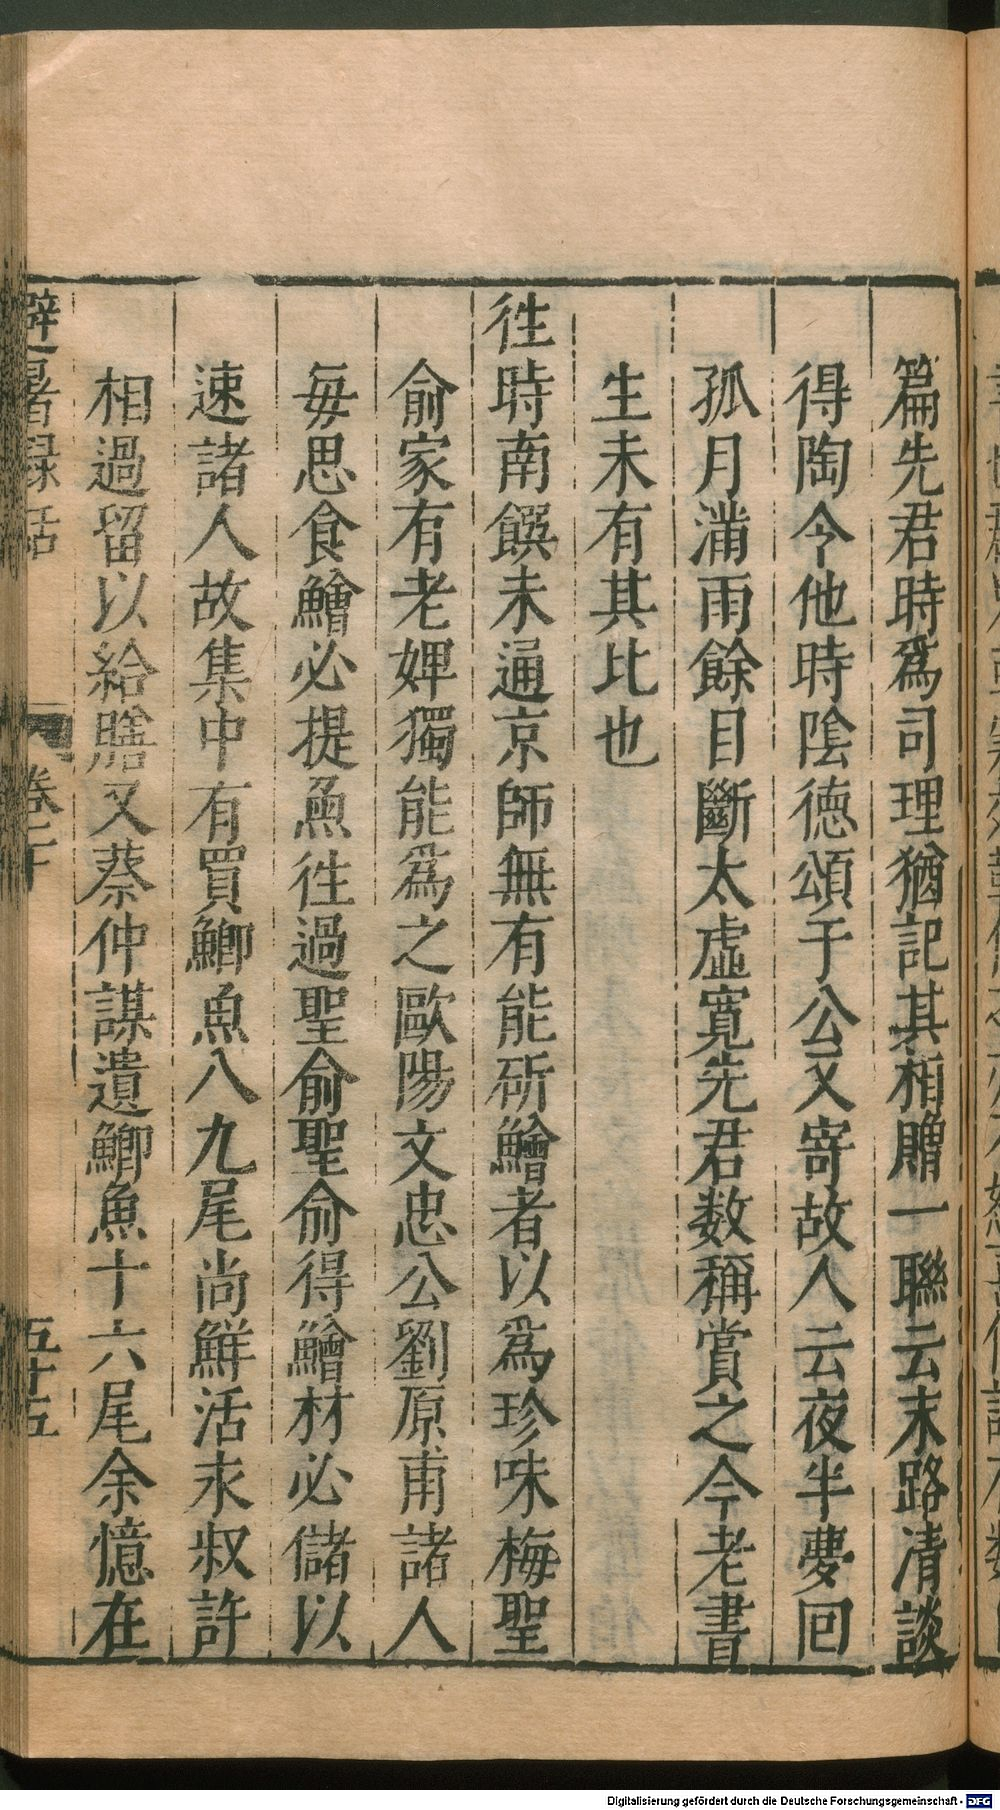 篇先君時爲司理猶記其相贈一聯云末路清談
得陶令他時陰德頌于公又寄故人云夜半夢回
孤月滿雨餘目斷太虛寬先君数稱賞之今老書
生未有其比也
徃時南饌未通京師無有能斫鱠者以爲珍味梅聖
俞家有老婢獨能爲之歐陽文忠公劉原甫諸人
每思食鱠必提魚徃過聖俞聖俞得鱠材必儲以
速諸人故集中有買鯽魚八九尾尚鮮活永叔許
相過留以給膳又蔡仲謀遺鯽魚十六尾余憶在
避暑録話
卷下
五十五
Digitalisierung gefördert durch die Deutsche Forschungsgemeinschaft - DFG